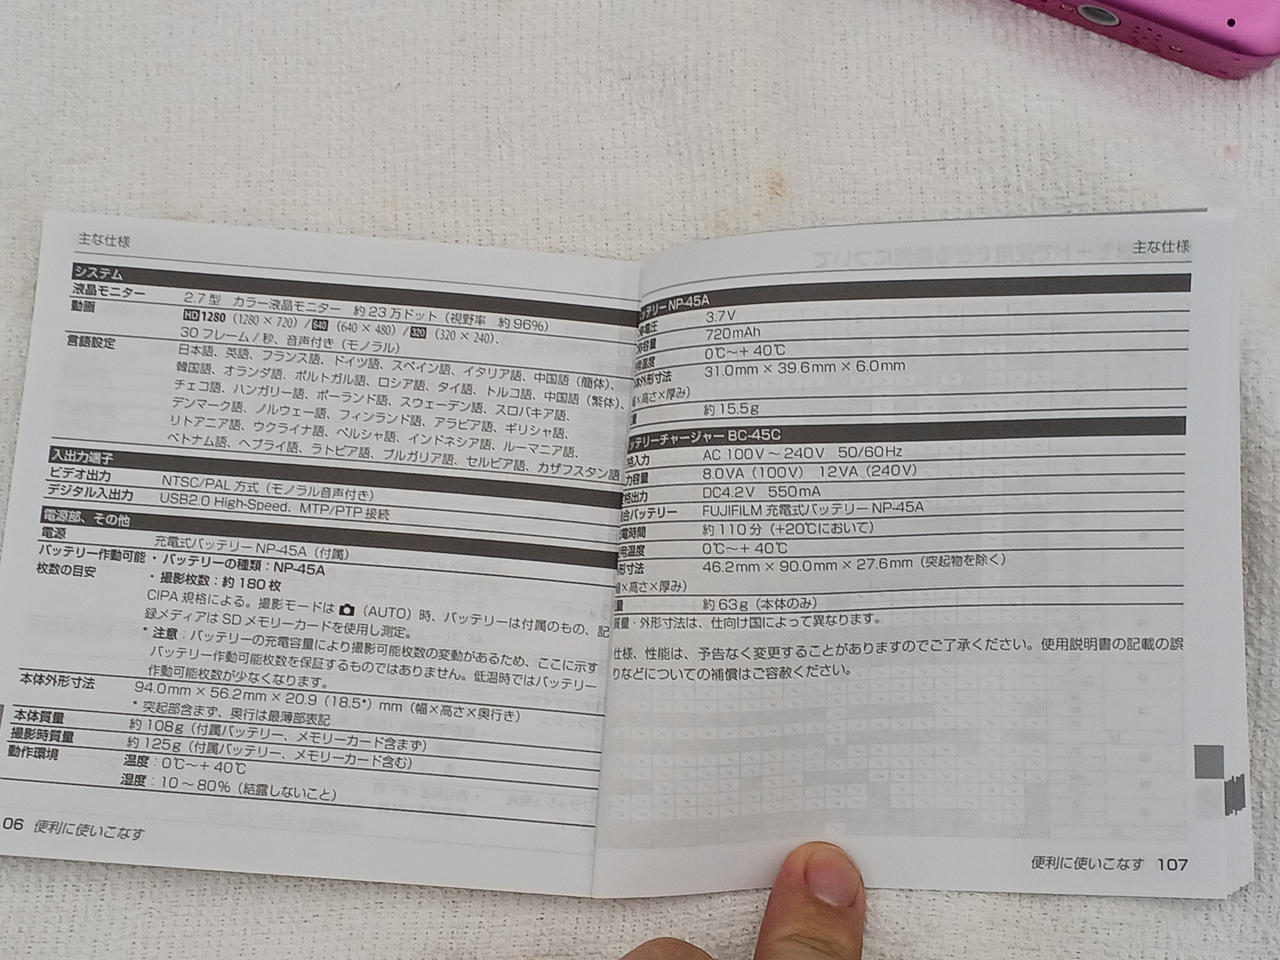 主な仕様
システム
液晶モニター 2.7型 カラー液晶モニター 約23万ドット(視野率 約96%)
動画 HD1280(1280×720)/640(640×480)/320(320×240)、
30フレーム/秒、音声付き(モノラル)
言語設定 日本語、英語、フランス語、ドイツ語、スペイン語、イタリア語、中国語(簡体)、
韓国語、オランダ語、ポルトガル語、ロシア語、タイ語、トルコ語、中国語(繁体)、
チェコ語、ハンガリー語、ポーランド語、スウェーデン語、スロバキア語、
デンマーク語、ノルウェー語、フィンランド語、アラビア語、ギリシャ語、
リトアニア語、ウクライナ語、ペルシャ語、インドネシア語、ルーマニア語、
ベトナム語、ヘブライ語、ラトビア語、ブルガリア語、セルビア語、カザフスタン語
入出力端子
ビデオ出力 NTSC/PAL方式(モノラル音声付き)
デジタル入出力 USB2.0 High-Speed、MTP/PTP接続
電源部、その他
電源 充電式バッテリーNP-45A(付属)
バッテリー作動可能 ・バッテリーの種類:NP-45A
枚数の目安 ・撮影枚数:約180枚
CIPA規格による。撮影モードは (AUTO)時、バッテリーは付属のもの、記
録メディアはSDメモリーカードを使用し測定。
*注意:バッテリーの充電容量により撮影可能枚数の変動があるため、ここに示す
バッテリー作動可能枚数を保証するものではありません。低温時ではバッテリー
作動可能枚数が少なくなります。
本体外形寸法 94.0mm×56.2mm×20.9(18.5*)mm(幅×高さ×奥行き)
*突起部含まず、奥行は最薄部表記
本体質量 約108g(付属バッテリー、メモリーカード含まず)
撮影時質量 約125g(付属バッテリー、メモリーカード含む)
動作環境 温度:0℃~+40℃
湿度:10~80%(結露しないこと)
06 便利に使いこなす
主な仕様
ッテリーNP-45A
電圧 3.7V
容量 720mAh
温度 0℃~+40℃
外形寸法 31.0mm×39.6mm×6.0mm
×高さ×厚み)
量 約15.5g
ッテリーチャージャーBC-45C
入力 AC 100V~240V 50/60Hz
力容量 8.0VA(100V) 12VA(240V)
格出力 DC4.2V 550mA
合バッテリー FUJIFILM充電式バッテリーNP-45A
電時間 約110分(+20℃において)
用温度 0℃~+40℃
形寸法 46.2mm×90.0mm×27.6mm(突起物を除く)
×高さ×厚み)
量 約63g(本体のみ)
質量・外形寸法は、仕向け国によって異なります。
仕様、性能は、予告なく変更することがありますのでご了承ください。使用説明書の記載の誤
りなどについての補償はご容赦ください。
便利に使いこなす 107